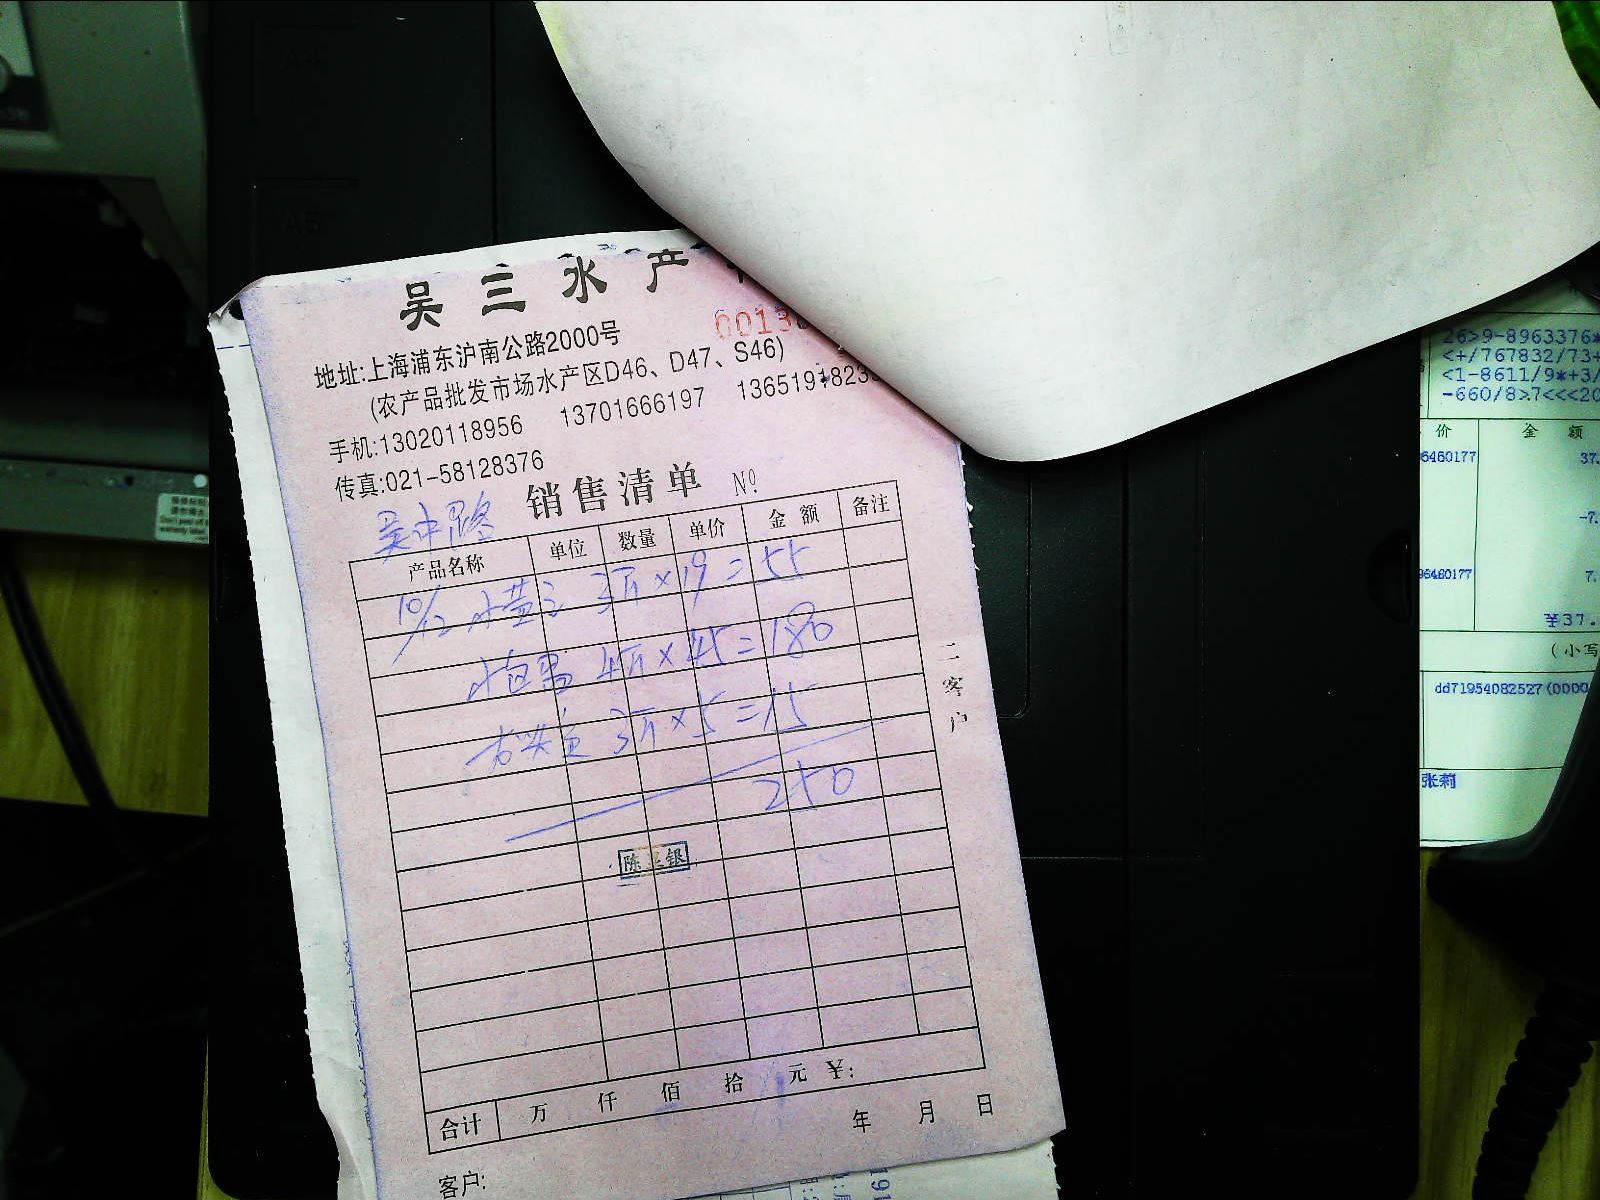 吴三水产
0013
地址:上海浦东沪南公路2000号
(农产品批发市场水产区D46、D47、S46)
手机:13020118956 13701666197 13651918233
传真:021-58128376
销售清单 Nº
吴中路
产品名称 单位 数量 单价 金额 备注
10/12 小黄鱼 3斤×19=55
小白唱 4斤×45=180
3斤×5=15
250
陈三银
合计 万 仟 佰 拾 元 ¥:
年 月 日
客户:
二客户
26>9-8963376*
<+/767832/73+
<1-8611/9*+3/
-660/8>7<<<20
价 金 额
96460177 37.
-7.
96460177 7.
¥37.
(小写
dd71954082527(0000
张莉
A5